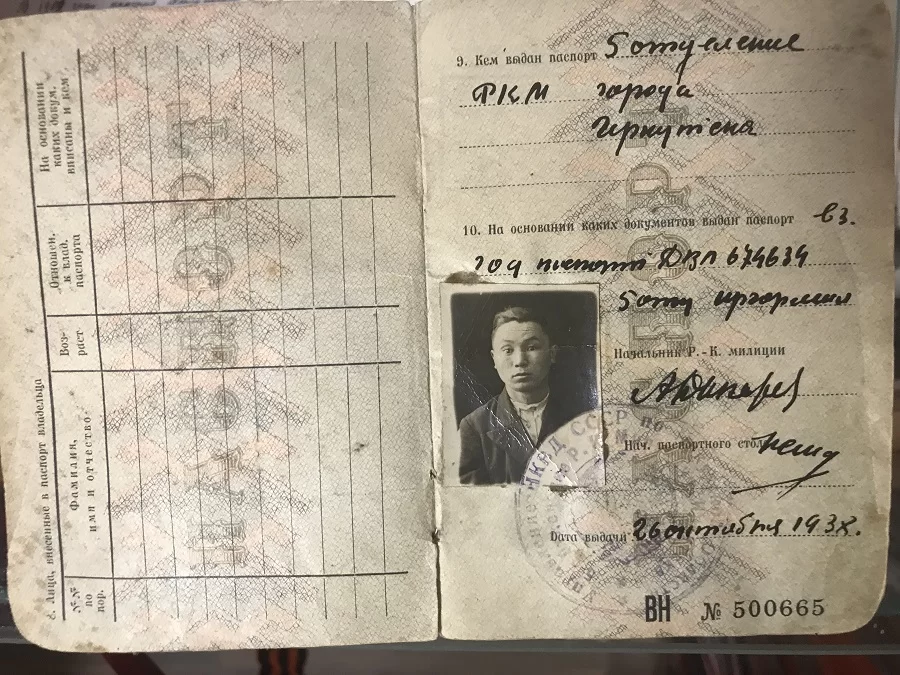 8. Лица, внесенные в паспорт владельца
№№ по пор.
Фамилия, имя и отчество
Возраст
Отношен. к влад. паспорта
На основании каких докум. вписаны и кем
9. Кем выдан паспорт 5 отделение
РКМ города
Иркутска
10. На основании каких документов выдан паспорт вз.
год паспорта 674634
5 отд
Начальник Р.-К. милиции
Нач. паспортного стола
Дата выдачи 26 октября 193
НКВД СССР по
ВН № 500665
ПАСПОРТ